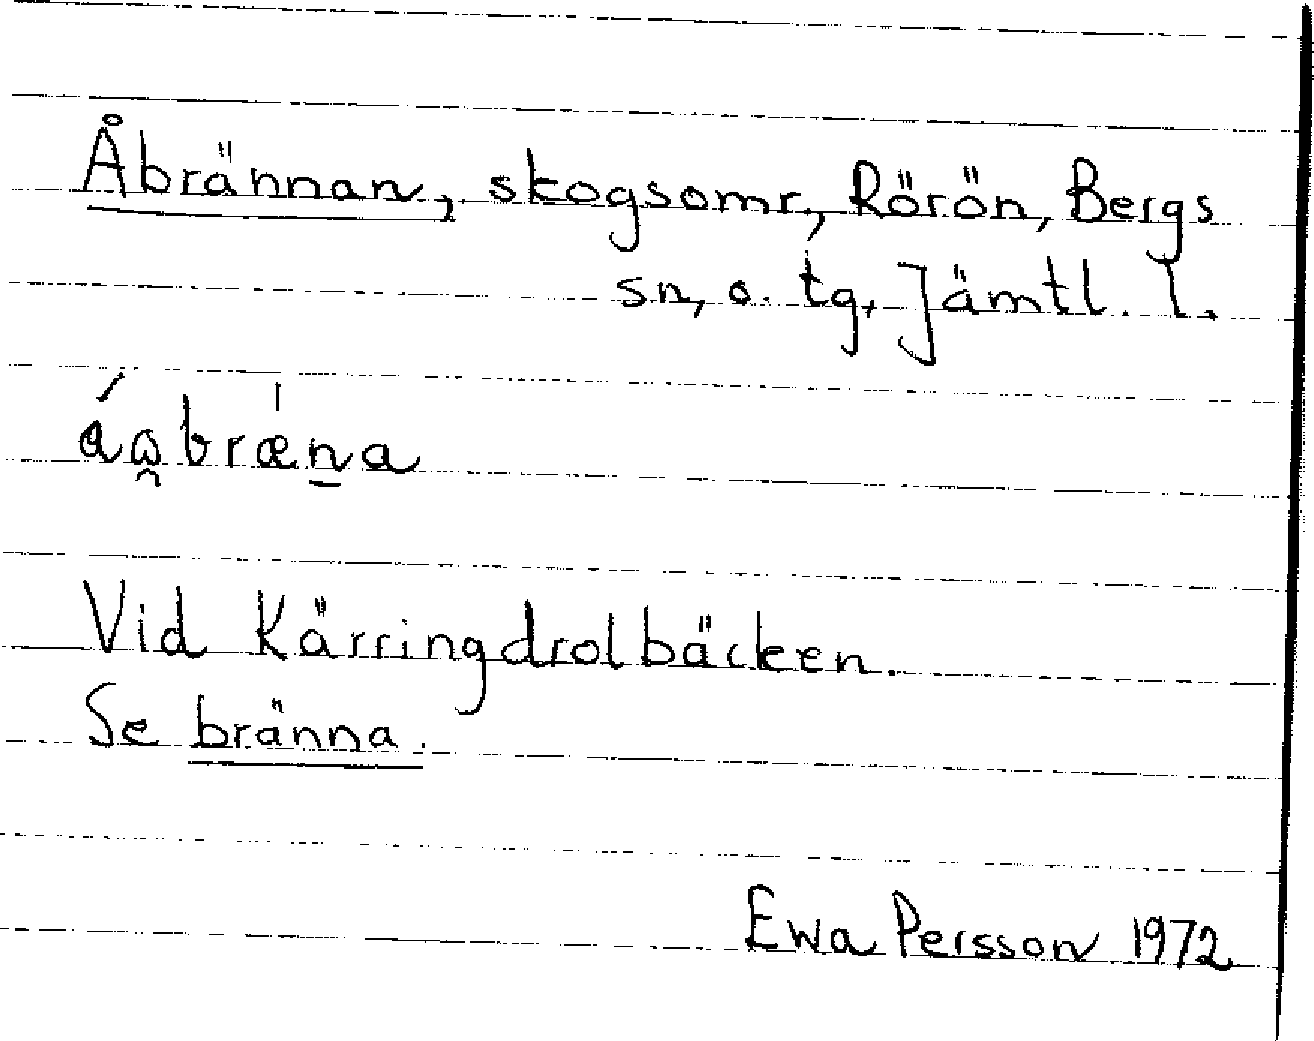 Åbrännan, skogsomr, Rörön, Bergs
sn, o. tg, Jämtl. l.
áa̯bræ̍n̲a
Vid Kärringdrolbäcken.
Se bränna.
Ewa Persson 1972